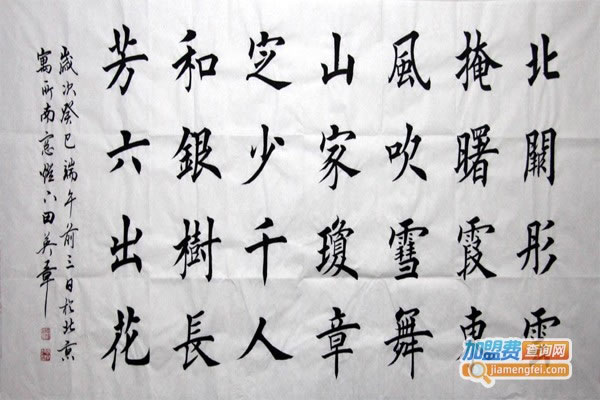 北闕彤雲
掩曙霞東
風吹雪舞
山家瓊章
定少千人
和銀樹長
芳六出花
歲次癸巳端午前三日於北京
寓所南窓燈下田英章
加盟费查询网
jiamengfei.com